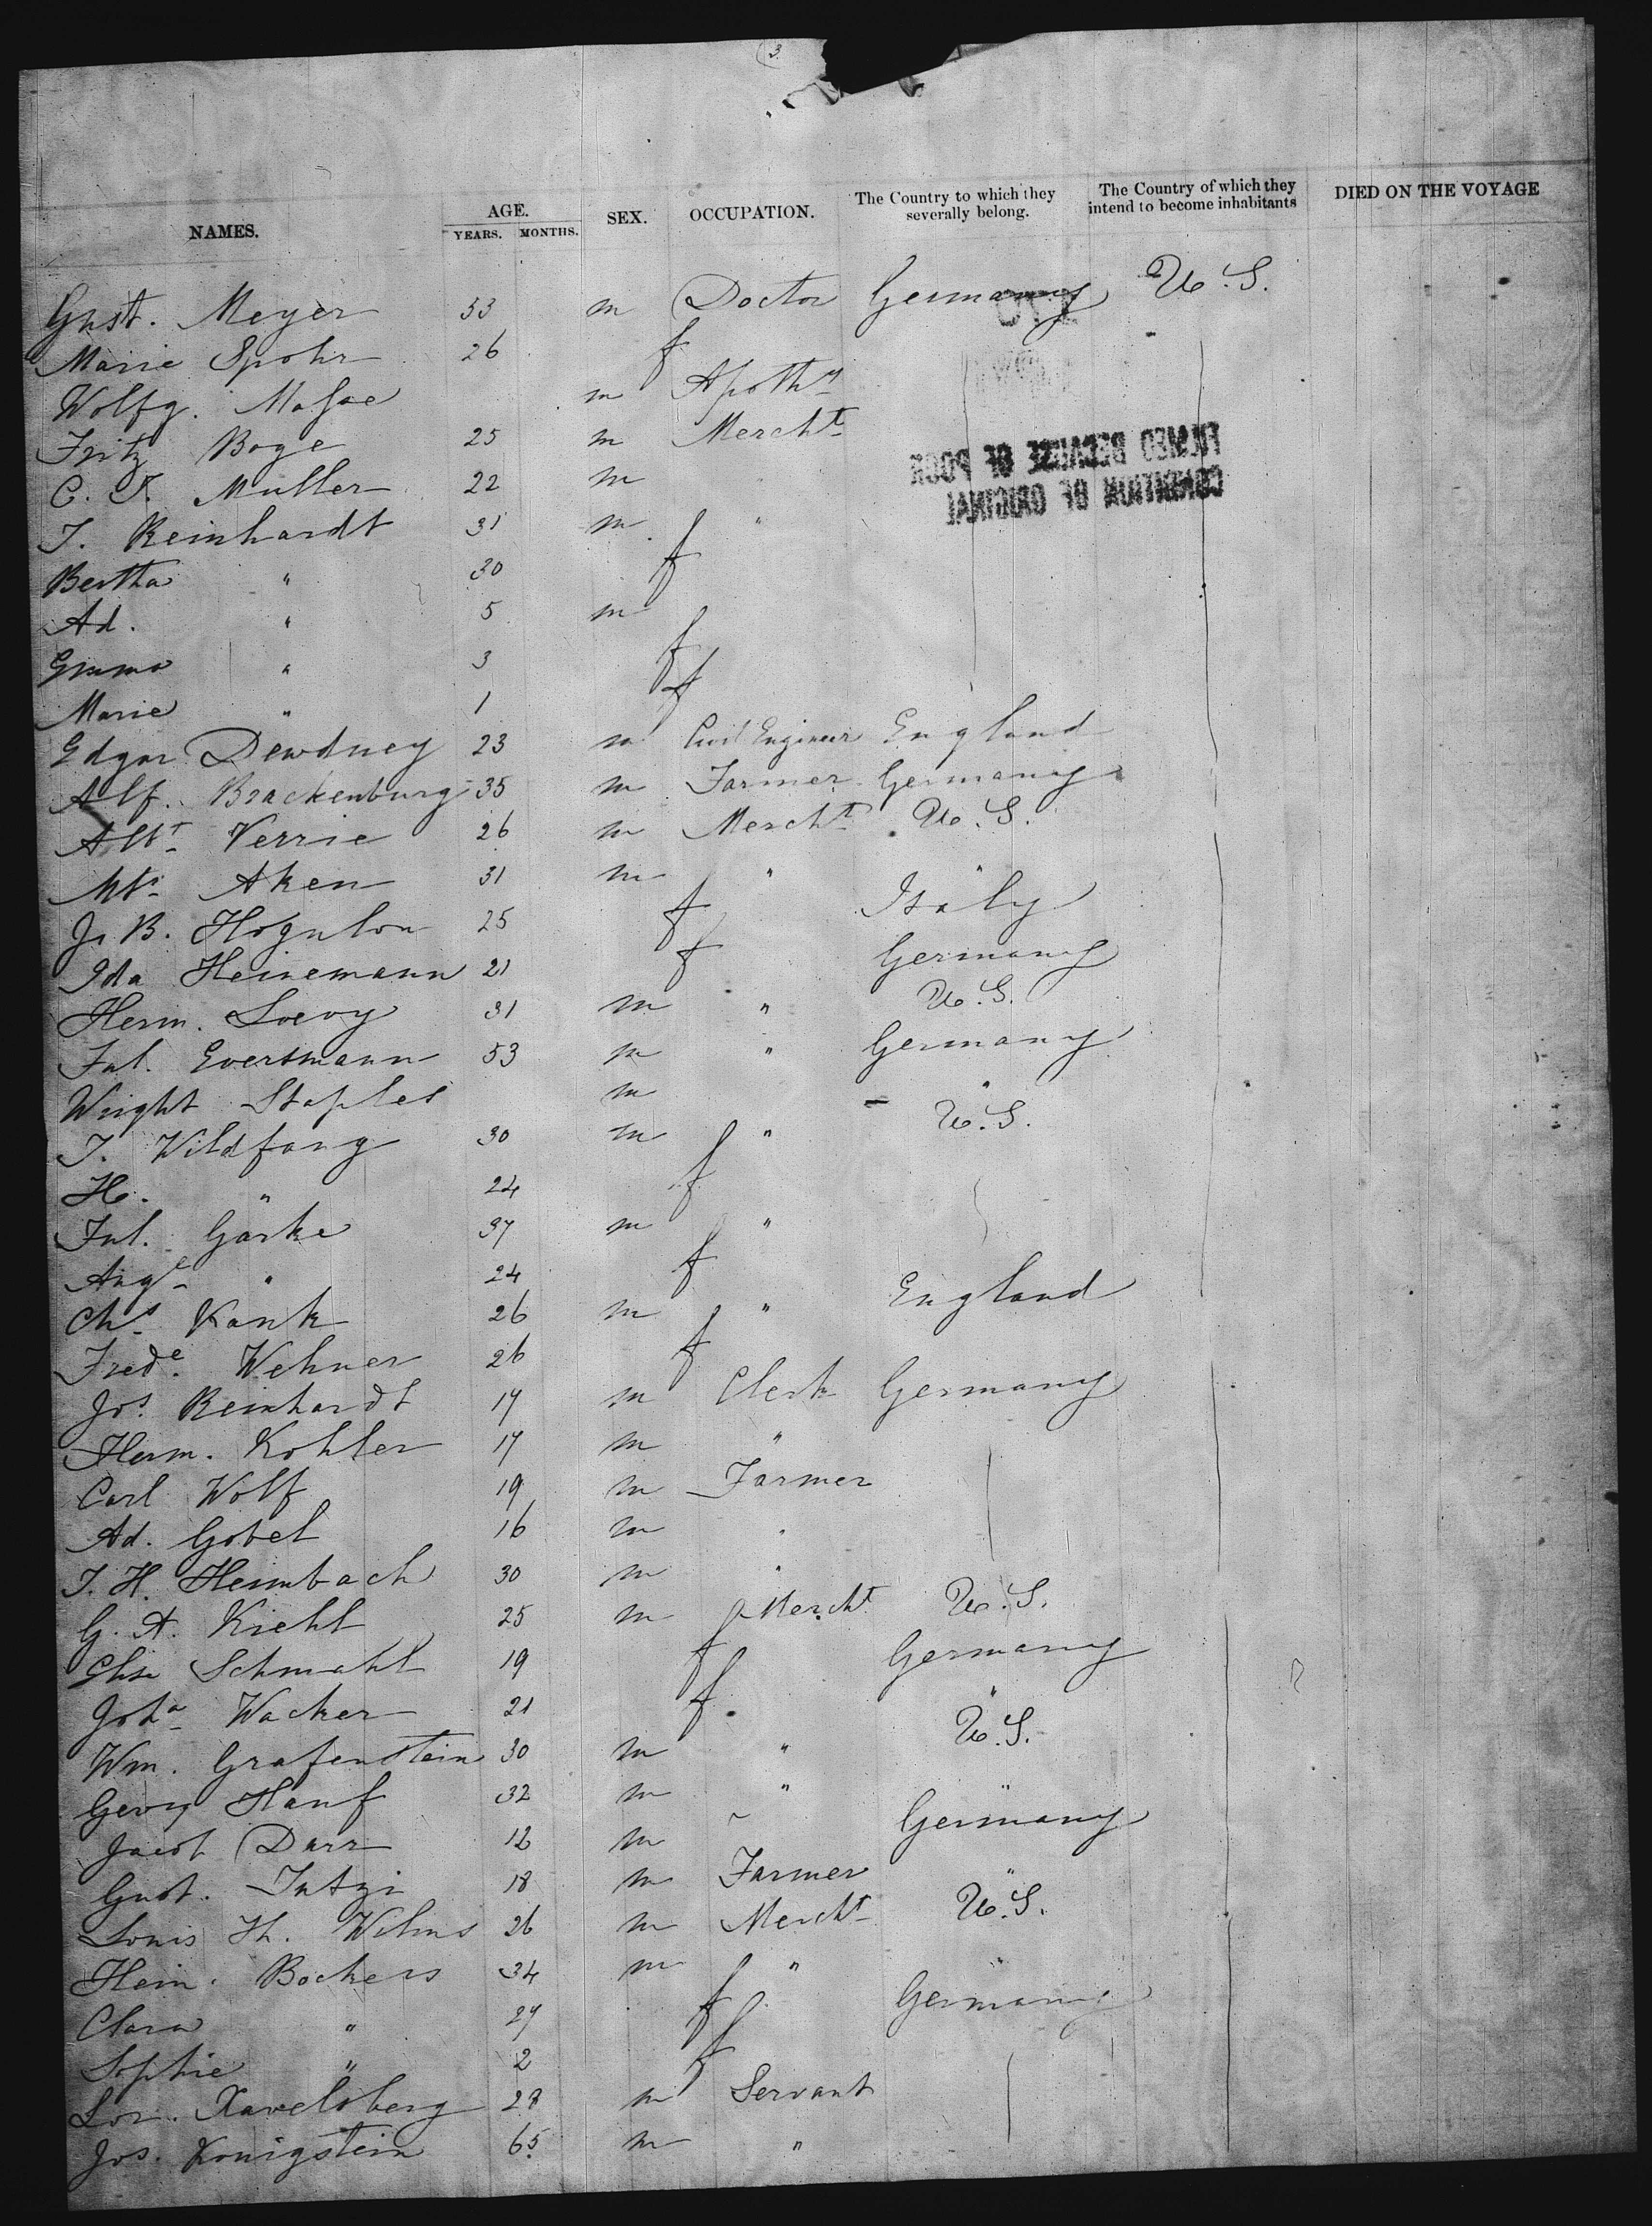 3
NAMES. AGE. YEARS. MONTHS. SEX. OCCUPATION. The Country to which they severally belong. The Country of which they intend to become inhabitants DIED ON THE VOYAGE
Gust. Meyer 53 m Doctor Germany U.S.
Marie Spohr 26 f
Wolfg. m Apothy
Fritz Boge 25 m Mercht
FILMED BECAUSE OF POOR
CONDITION OF ORIGINAL
C. F. Muller 22 m "
J. Reinhardt 31 m "
Bertha " 30 f
Ad. " 5 m
Emma " 3 f
Marie " 1 f
Edgar Dewdney 23 m Civil Engineer England
Alf. Brackenburg 35 m Farmer Germany
Albt Verrie 26 m Mercht U.S.
Aken 31 m " "
J. B. 25 f Italy
Ida Heinemann 21 f Germany
Herm. Loevy 31 m " U.S.
Jul. Eversmann 53 m " Germany
Wright Staples m "
J. Wildfang 30 m " U.S.
H. " 24 f
Jul. Garke 37 m "
Auge " 24 f
Chs Kank 26 m " England
Frede. Wehner 26 f
Jos. Reinhardt 17 m Clerk Germany
Herm. Kohler 17 m "
Carl Wolf 19 m Farmer
Ad. Gobel 16 m "
J. H. Heimbach 30 m "
G. A. Kiehl 25 m Mercht U.S.
Elise Schmahl 19 f Germany
Joha Wacker 21 f "
Wm. Grafenstein 30 m " U.S.
Georg Hanf 32 m " "
Jacob Darr 12 m ~ Germany
Gust. 18 m Farmer "
Louis H. Wilms 26 m Mercht U.S.
Hein. Bockers 34 m " "
Clara " 27 f Germany
Sophie " 2 f
Lor. Ravelsberg 28 m Servant
Jos. Konigstein 65 m "